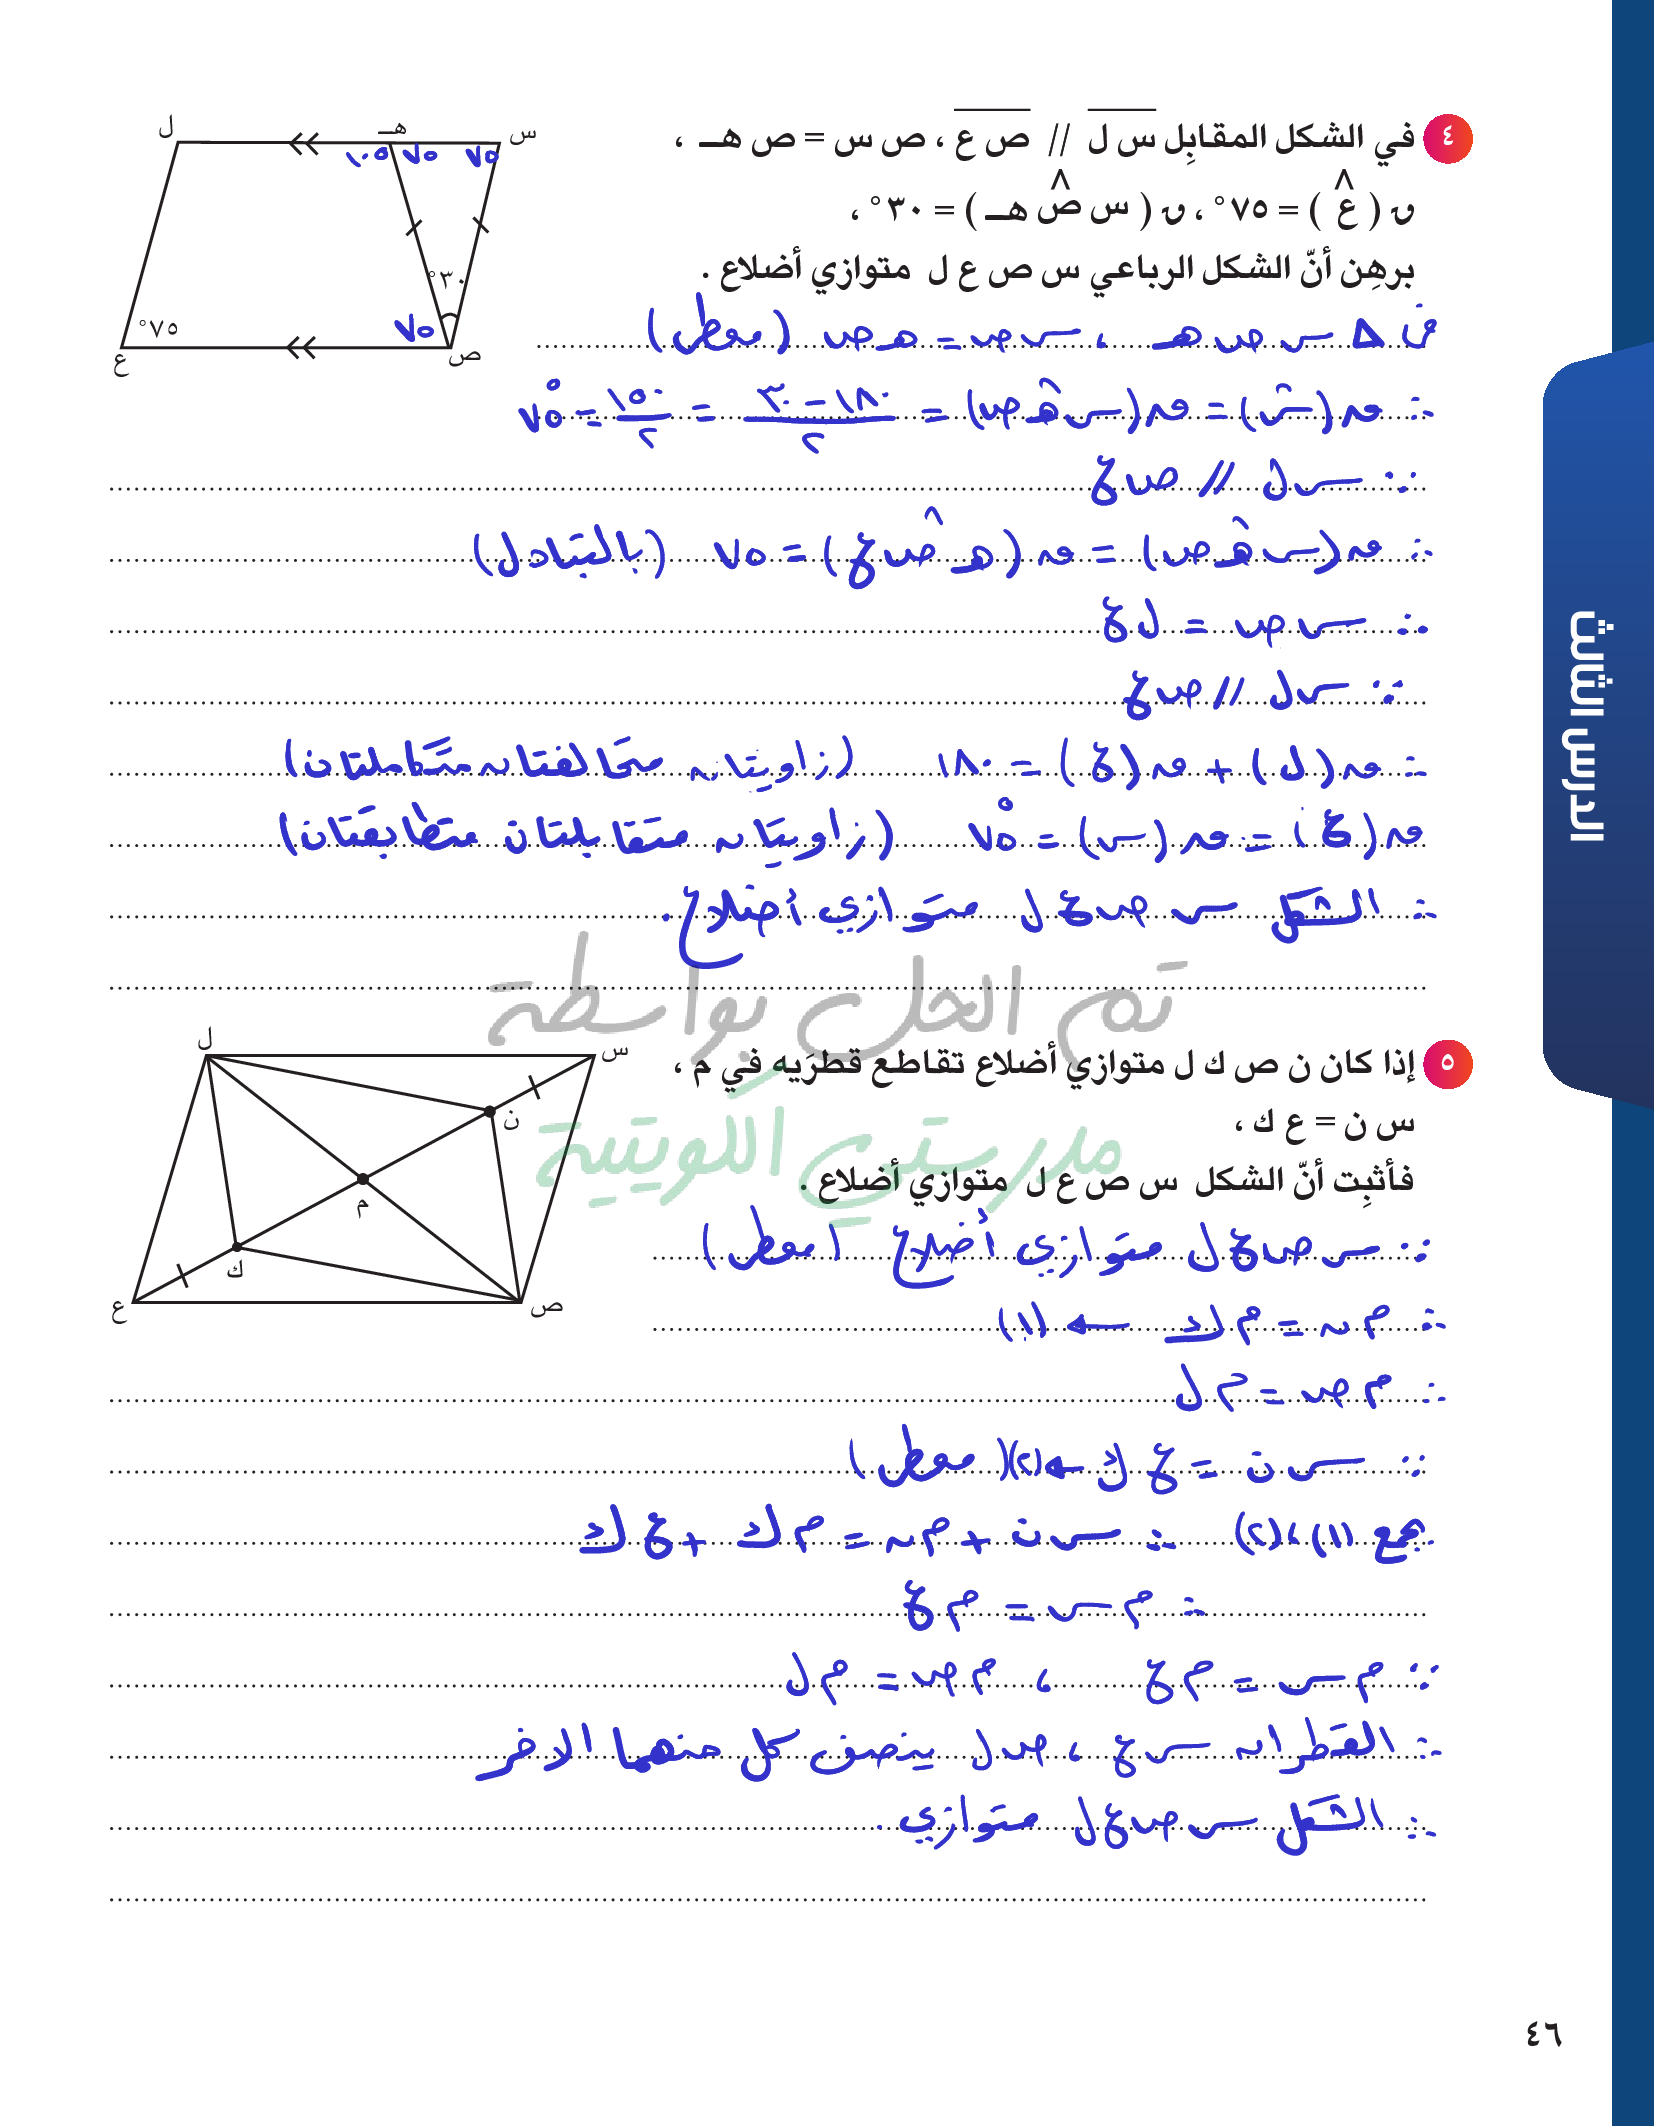 ٤ في الشكل المقابِل س ل // ص ع ، ص س = ص هـ ،
ن ( ع ) = ٧٥° ، ن ( س ص هـ ) = ٣٠° ،
برهِن أنّ الشكل الرباعي س ص ع ل متوازي أضلاع .
ل هـ س
١٠٥ ٧٥ ٧٥
٣٠°
٧٥° ٧٥
ع ص
في △ س ص هـ ، س ص = هـ ص (معطى)
∴ ن(س) = ن(س هـ ص) = (١٨٠ - ٣٠)/٢ = ١٥٠/٢ = ٧٥°
∵ س ل // ص ع
∴ ن(س هـ ص) = ن(هـ ص ع) = ٧٥ (بالتبادل)
∴ س ص = ل ع
∵ س ل // ص ع
∴ ن(ل) + ن(ع) = ١٨٠ (زاويتان متحالفتان متكاملتان)
ن(ع) = ن(س) = ٧٥° (زاويتان متقابلتان متطابقتان)
∴ الشكل س ص ع ل متوازي أضلاع .
تم الحل بواسطة
مدرستي الكويتية
٥ إذا كان ن ص ك ل متوازي أضلاع تقاطع قطرَيه في م ،
س ن = ع ك ،
فأثبِت أنّ الشكل س ص ع ل متوازي أضلاع .
ل س
ن
م
ك
ع ص
∵ س ص ع ل متوازي أضلاع (معطى)
∴ م ن = م ك ← (١)
∴ م ص = م ل
∵ س ن = ع ك ← (٢) (معطى)
بجمع (١) ، (٢) ∴ س ن + م ن = م ك + ع ك
∴ م س = م ع
∵ م س = م ع ، م ص = م ل
∴ القطران س ع ، ص ل ينصف كل منهما الاخر
∴ الشكل س ص ع ل متوازي .
الدرس الثالث
٤٦